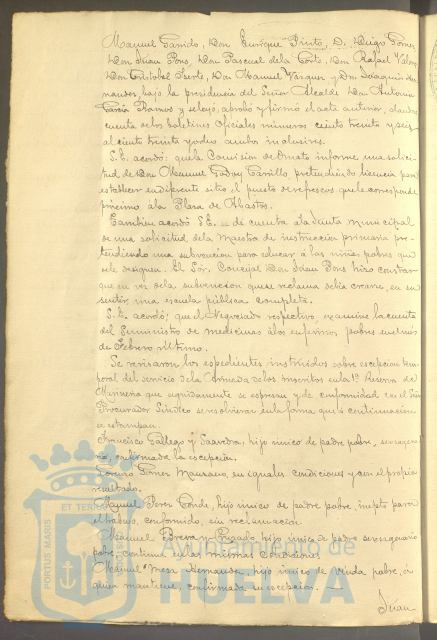 Manuel Garrido, Don Enrique Pinto, D. Diego Gomez
Don Juan Pons, Don Pascual de la Corte, Don Rafael
Don Cristobal Don Manuel Vazquez y Don Joaquin
nandez, bajo la presidencia del Señor Alcalde Don Antonio
Garcia Ramos y se leyó, aprobó y firmó el acta anterior, dandose
cuenta de los boletines oficiales numeros ciento treinta y seis
al ciento treinta y ocho ambos inclusives.
S. E. acordó: que la Comision de Ornato informe una solici-
tud de Don Manuel Godoy Carrillo, pretendiendo licencia para
establecer en diferente sitio, el puesto de refrescos que le corresponde
proximo á la Plaza de Abastos.
Tambien acordó S. E. dé cuenta á la Junta municipal
de una solicitud de la Maestra de instruccion primaria pre-
tendiendo una subvencion para educar á las niñas pobres que
se le designen. El Sor. Concejal Don Juan Pons hizo constar
que en vez de la subvencion que se reclama debia crearse, en su
sentir una escuela pública completa.
S. E. acordó; que el Negociado respectivo, examine la cuenta
del suministro de medicinas á los enfermos pobres en el mes
de Febrero último.
Se revisaron los espedientes instruidos sobre escepcion tem-
poral del servicio de la Armada de los inscritos en la 1ª reserva de
Marineria que seguidamente se espresan y de conformidad con el Señor
Procurador Sindico se resolvieron en la forma que á continuacion
se estampan.
Francisco Gallego y Saavedra, hijo único de padre pobre, sexagena-
rio, confirmada la escepcion.
Gomez Manzano, en iguales condiciones y con el propio
resultado.
Manuel Perez Conde, hijo único de padre pobre, inepto para
el trabajo, confirmado, sin reclamacion
Manuel hijo único de padre sexagenario
pobre, continua en las mismas condiciones.
Manuel Mesa Hernandez, hijo único de viuda pobre, á
quien mantiene, confirmada su escepcion. —
Juan
PORTUS MARIS
ET TERRAE
Ayuntamiento de
HUELVA